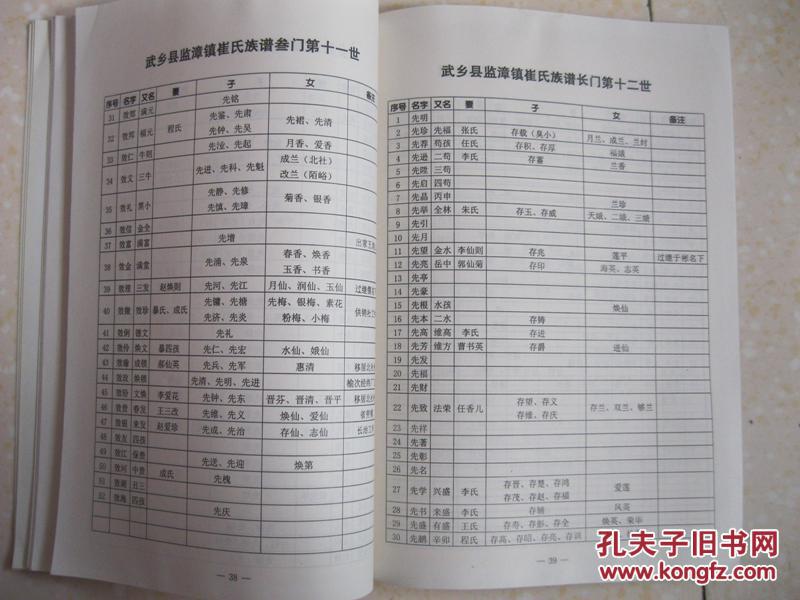 武乡县监漳镇崔氏族谱叁门第十一世
序号 名字 又名 妻 子 女 备注
先铭
31 效郑 满元 先鉴、先肃
32 效郑 福元 程氏 先钟、先吴 先裙、先清
33 效仁 牛则 先淦、先起 月香、爱香
34 效文 三牛 先进、先科、先魁 成兰（北社）
改兰（陌峪）
35 效礼 黑小 先静、先修 菊香、银香
先慎、先璋
36 效信 金全
37 效富 满富 先增
38 效金 满堂 先浦、先泉 春香、焕香
玉香、书香
39 效理 三发 赵焕则 先河、先江 月仙、润仙、玉仙
40 效微 效珍 暴氏、成氏 先镛、先糖 先梅、银梅、素花
先济、先炎 粉梅、小梅
41 效例 德文 先礼
42 效伶 焕文 暴四孩 先仁、先宏 水仙、娥仙
43 效瑜 成根 郝仙英 先兵、先军 惠清
44 效政 焕根 先清、先明、先进
45 效纷 文焕 李爱花 先钟、先东 晋芬、晋清、晋平
46 效曾 春发 王三改 先维、先义 焕仙、爱仙
47 效银 来发 赵爱珍 先成、先治 存仙、志仙
48 效友 四孩
49 效江 保贵 先送、先迎 焕第
50 效河 中贵 成氏 先槐
51 效湖 丑三
52 效海 四孩 先庆
— 38 —
武乡县监漳镇崔氏族谱长门第十二世
序号 名字 又名 妻 子 女 备注
1 先明
2 先珍 先福 张氏 存载（臭小） 月兰、成兰、兰封
3 先荐 苟孩 任氏 存积、存厚 福娥
4 先逊 二苟 李氏 存蓄 兰香
5 先陞 三苟
6 先启 四苟
7 先晶 丙申 兰珍
8 先举 全林 朱氏 存玉、存威 天娥、二娥、三娥
9 先引
10 先月
11 先望 金水 李仙则 存兆 莲平 过继于彬名下
12 先亮 岳中 郭仙菊 存印 海英、志英
13 先亭
14 先豪
15 先根 水孩 焕仙
16 先本 二水 存铸
17 先高 维高 李氏 存进
18 先芳 维方 曹书英 存爵 进仙
19 先发
20 先福
21 先财
22 先致 法荣 任香儿 存望、存义
存维、存庆 存兰、双兰、够兰
23 先祥
24 先著
25 先彰
26 先名
27 先学 兴盛 李氏 存晋、存楚、存鸿
存茂、存赵、存福 爱莲
28 先书 来盛 李氏 存辅 风英
29 先盛 有盛 王氏 存寿、存彭、存全 焕英、荣华
30 先鹏 辛卯 程氏 存高、存昭、存亮、存训
— 39 —
孔夫子旧书网
www.kongfz.com